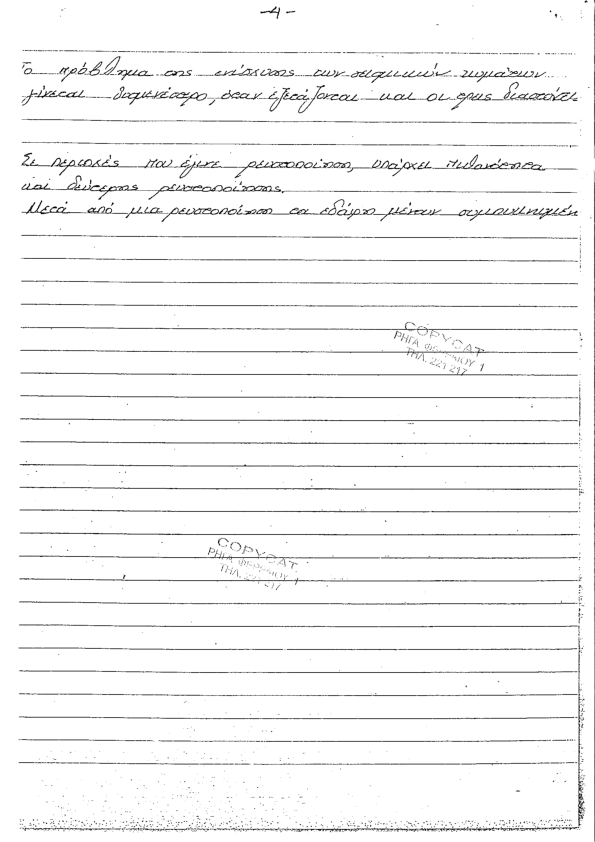 -4-
Το πρόβλημα της ενίσχυσης των σεισμικών κυμάτων
γίνεται δυσμενέστερο, όταν εξετάζονται και οι τρεις διαστάσει
Σε περιοχές που έγινε ρευστοποίηση, υπάρχει πιθανότητα
και δεύτερης ρευστοποίησης.
Μετά από μια ρευστοποίηση τα εδάφη μένουν
COPYCAT
ΡΗΓΑ ΦΕΡΑΙΟΥ 1
ΤΗΛ. 221 217
COPYCAT
ΡΗΓΑ ΦΕΡΑΙΟΥ 1
ΤΗΛ. 221 217